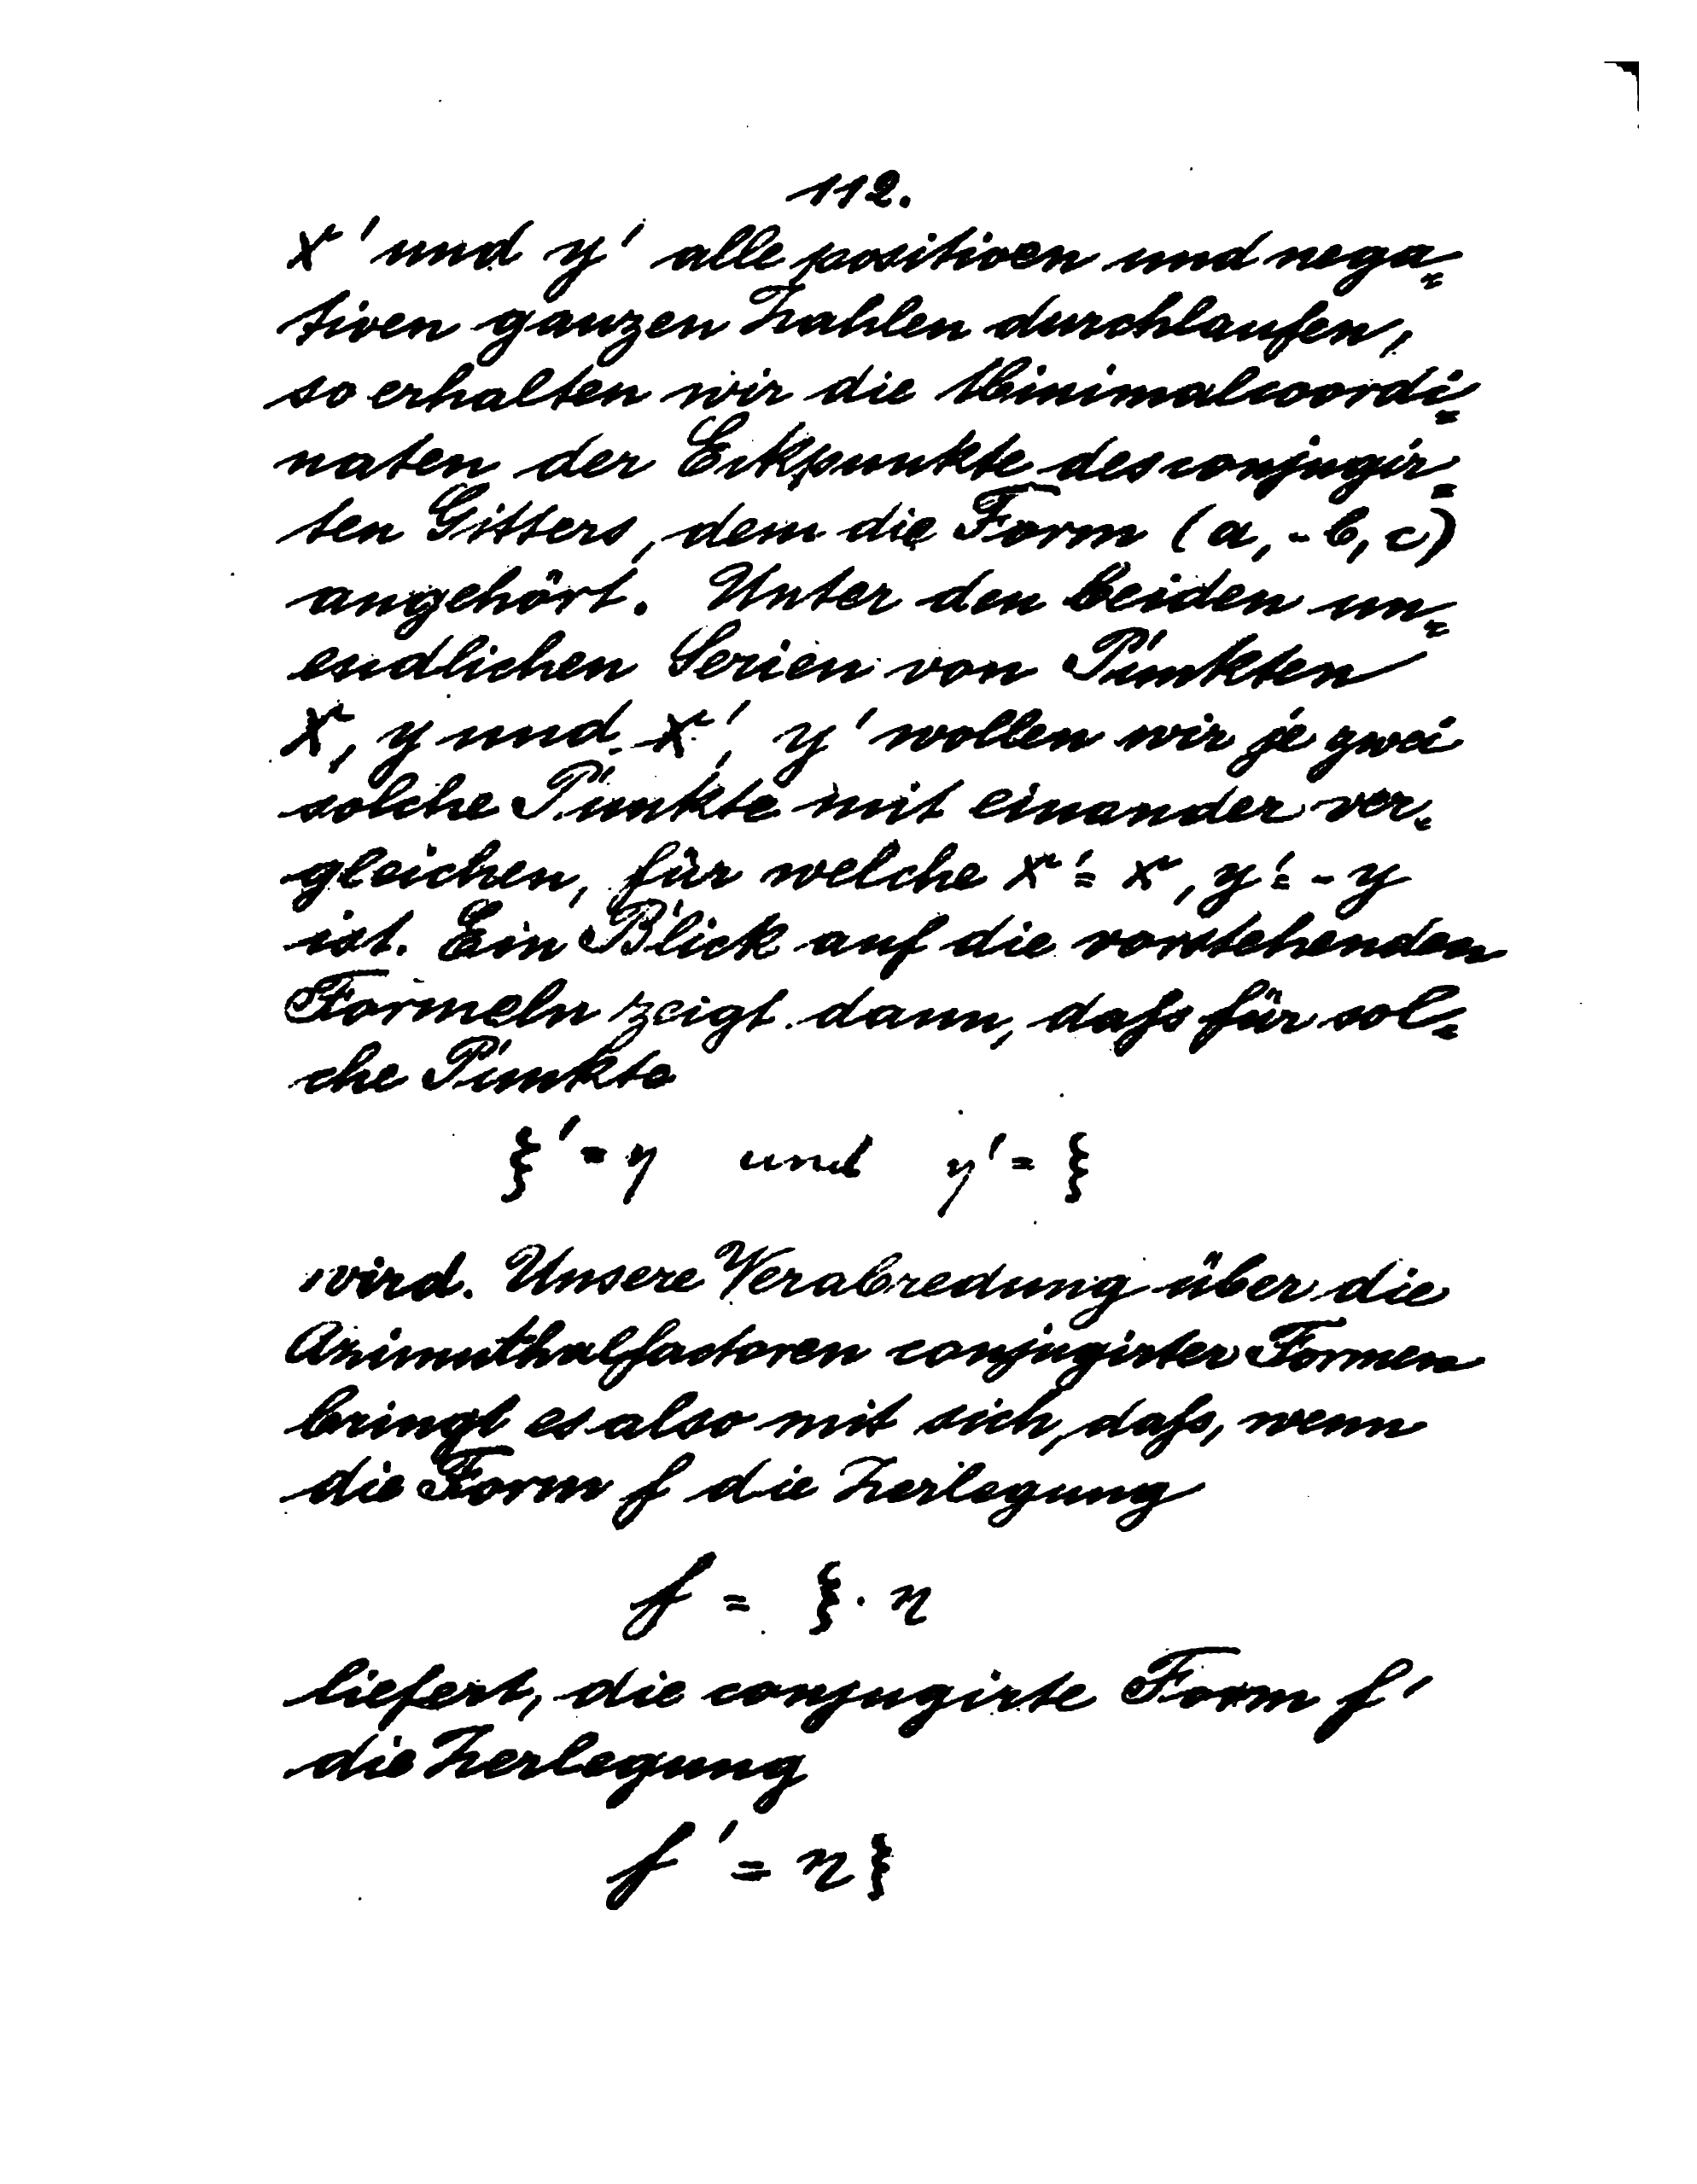 112.
x' und y' alle positiven und nega=
tiven ganzen Zahlen durchlaufen,
so erhalten wir die Minimalcoordi=
naten der Eckpunkte des conjugir=
ten Gitters, dem die Form (a, -b, c)
angehört. Unter den beiden un=
endlichen Serien von Punkten
x, y und x', y' wollen wir je zwei
solche Punkte mit einander ver=
gleichen, für welche x' = x, y' = -y
ist. Ein Blick auf die vorstehenden
Formeln zeigt dann, daſs für sol=
che Punkte
ξ' = η und η' = ξ
wird. Unsere Verabredung über die
Azimuthalfactoren conjugirter Formen
bringt es also mit sich, daſs, wenn
die Form f die Zerlegung
f = ξ · η
liefert, die conjugirte Form f'
die Zerlegung
f' = η ξ